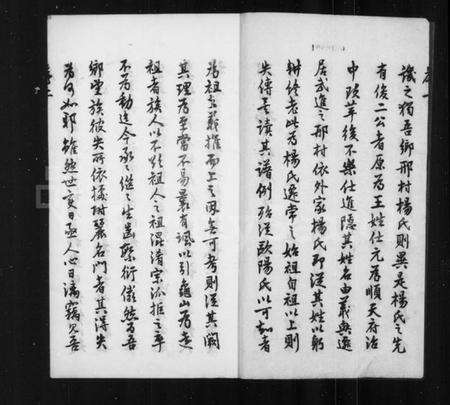 譏之獨吾鄉邢村楊氏則異是楊氏之先
有俊二公者原為王姓仕元為順天府治
中頂革後不樂仕進隱其姓名由義興遷
居武進之邢村依外家楊氏即從其姓以躬
耕終老此為楊氏遷常之始祖自祖以上則
失傳矣讀其譜例殆從歐陽氏以可知者
為祖之義推而上之因無可考則從其闕
其理為至當不易最有諷以引龜山為走
祖者族人以不欲祖人之祖混淆宗派拒之卒
不為動迄今承繼之生齒繁衍儼然為吾
鄉望族彼失所依據附麗名門者其得失
為何如耶雖然世變日亟人心日漓竊見吾